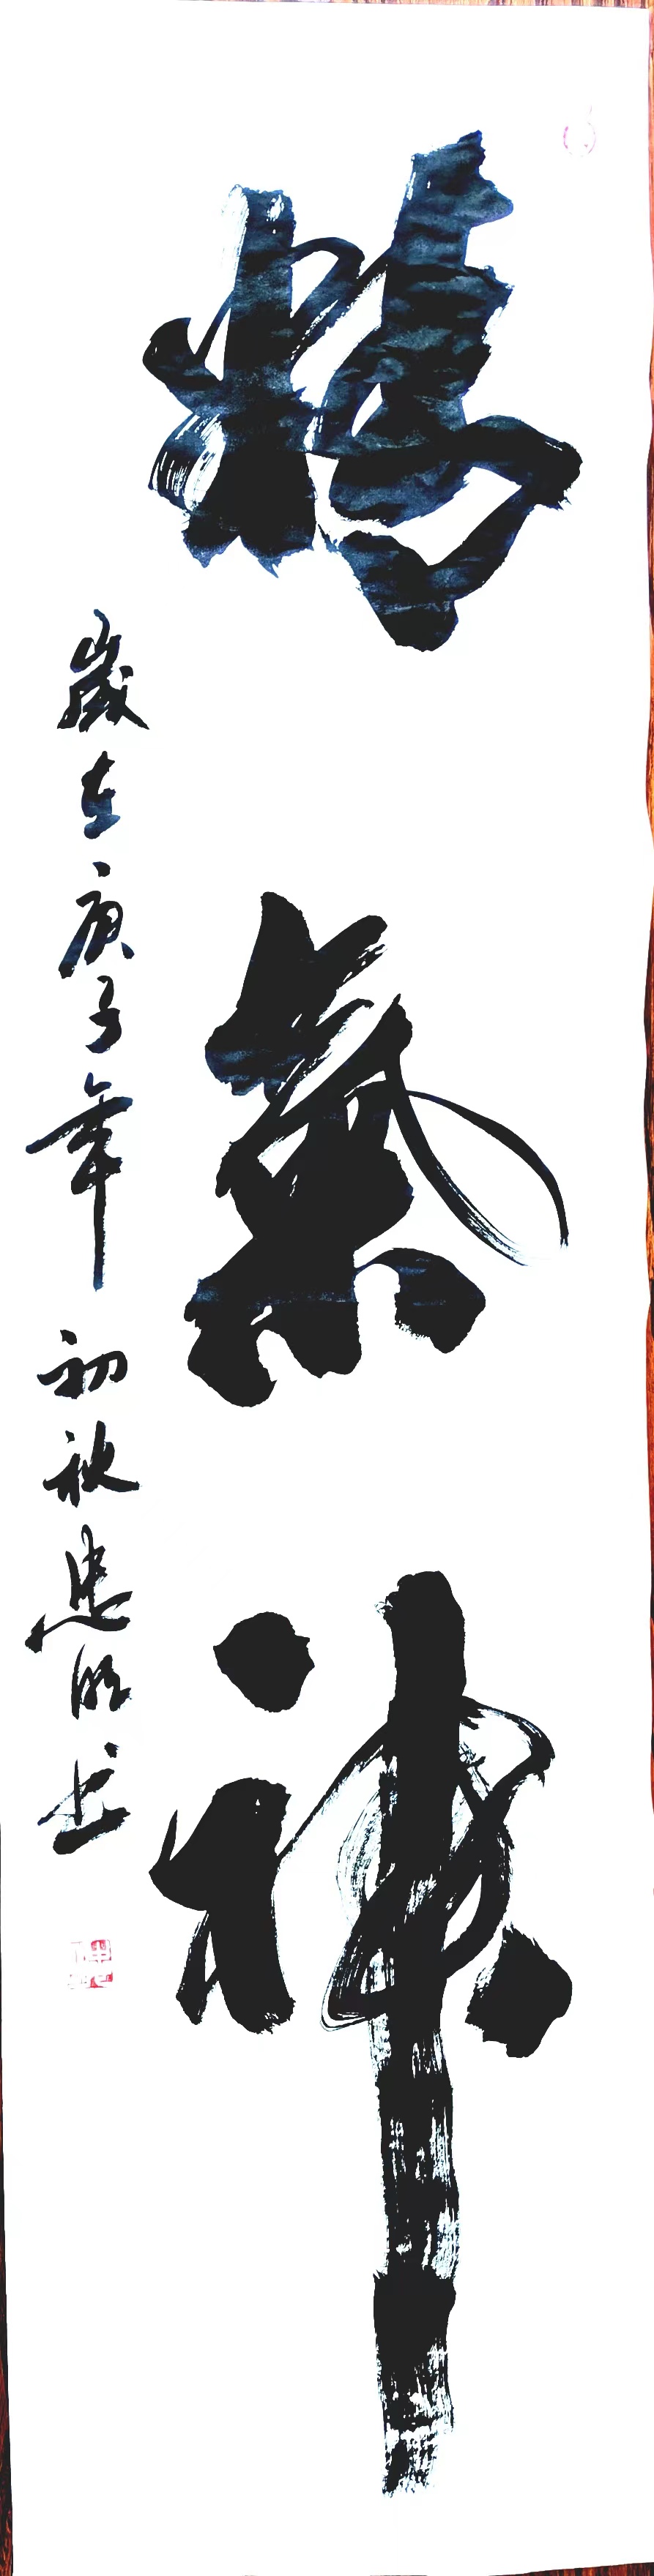 精氣神
歲在庚子年初秋忠明书